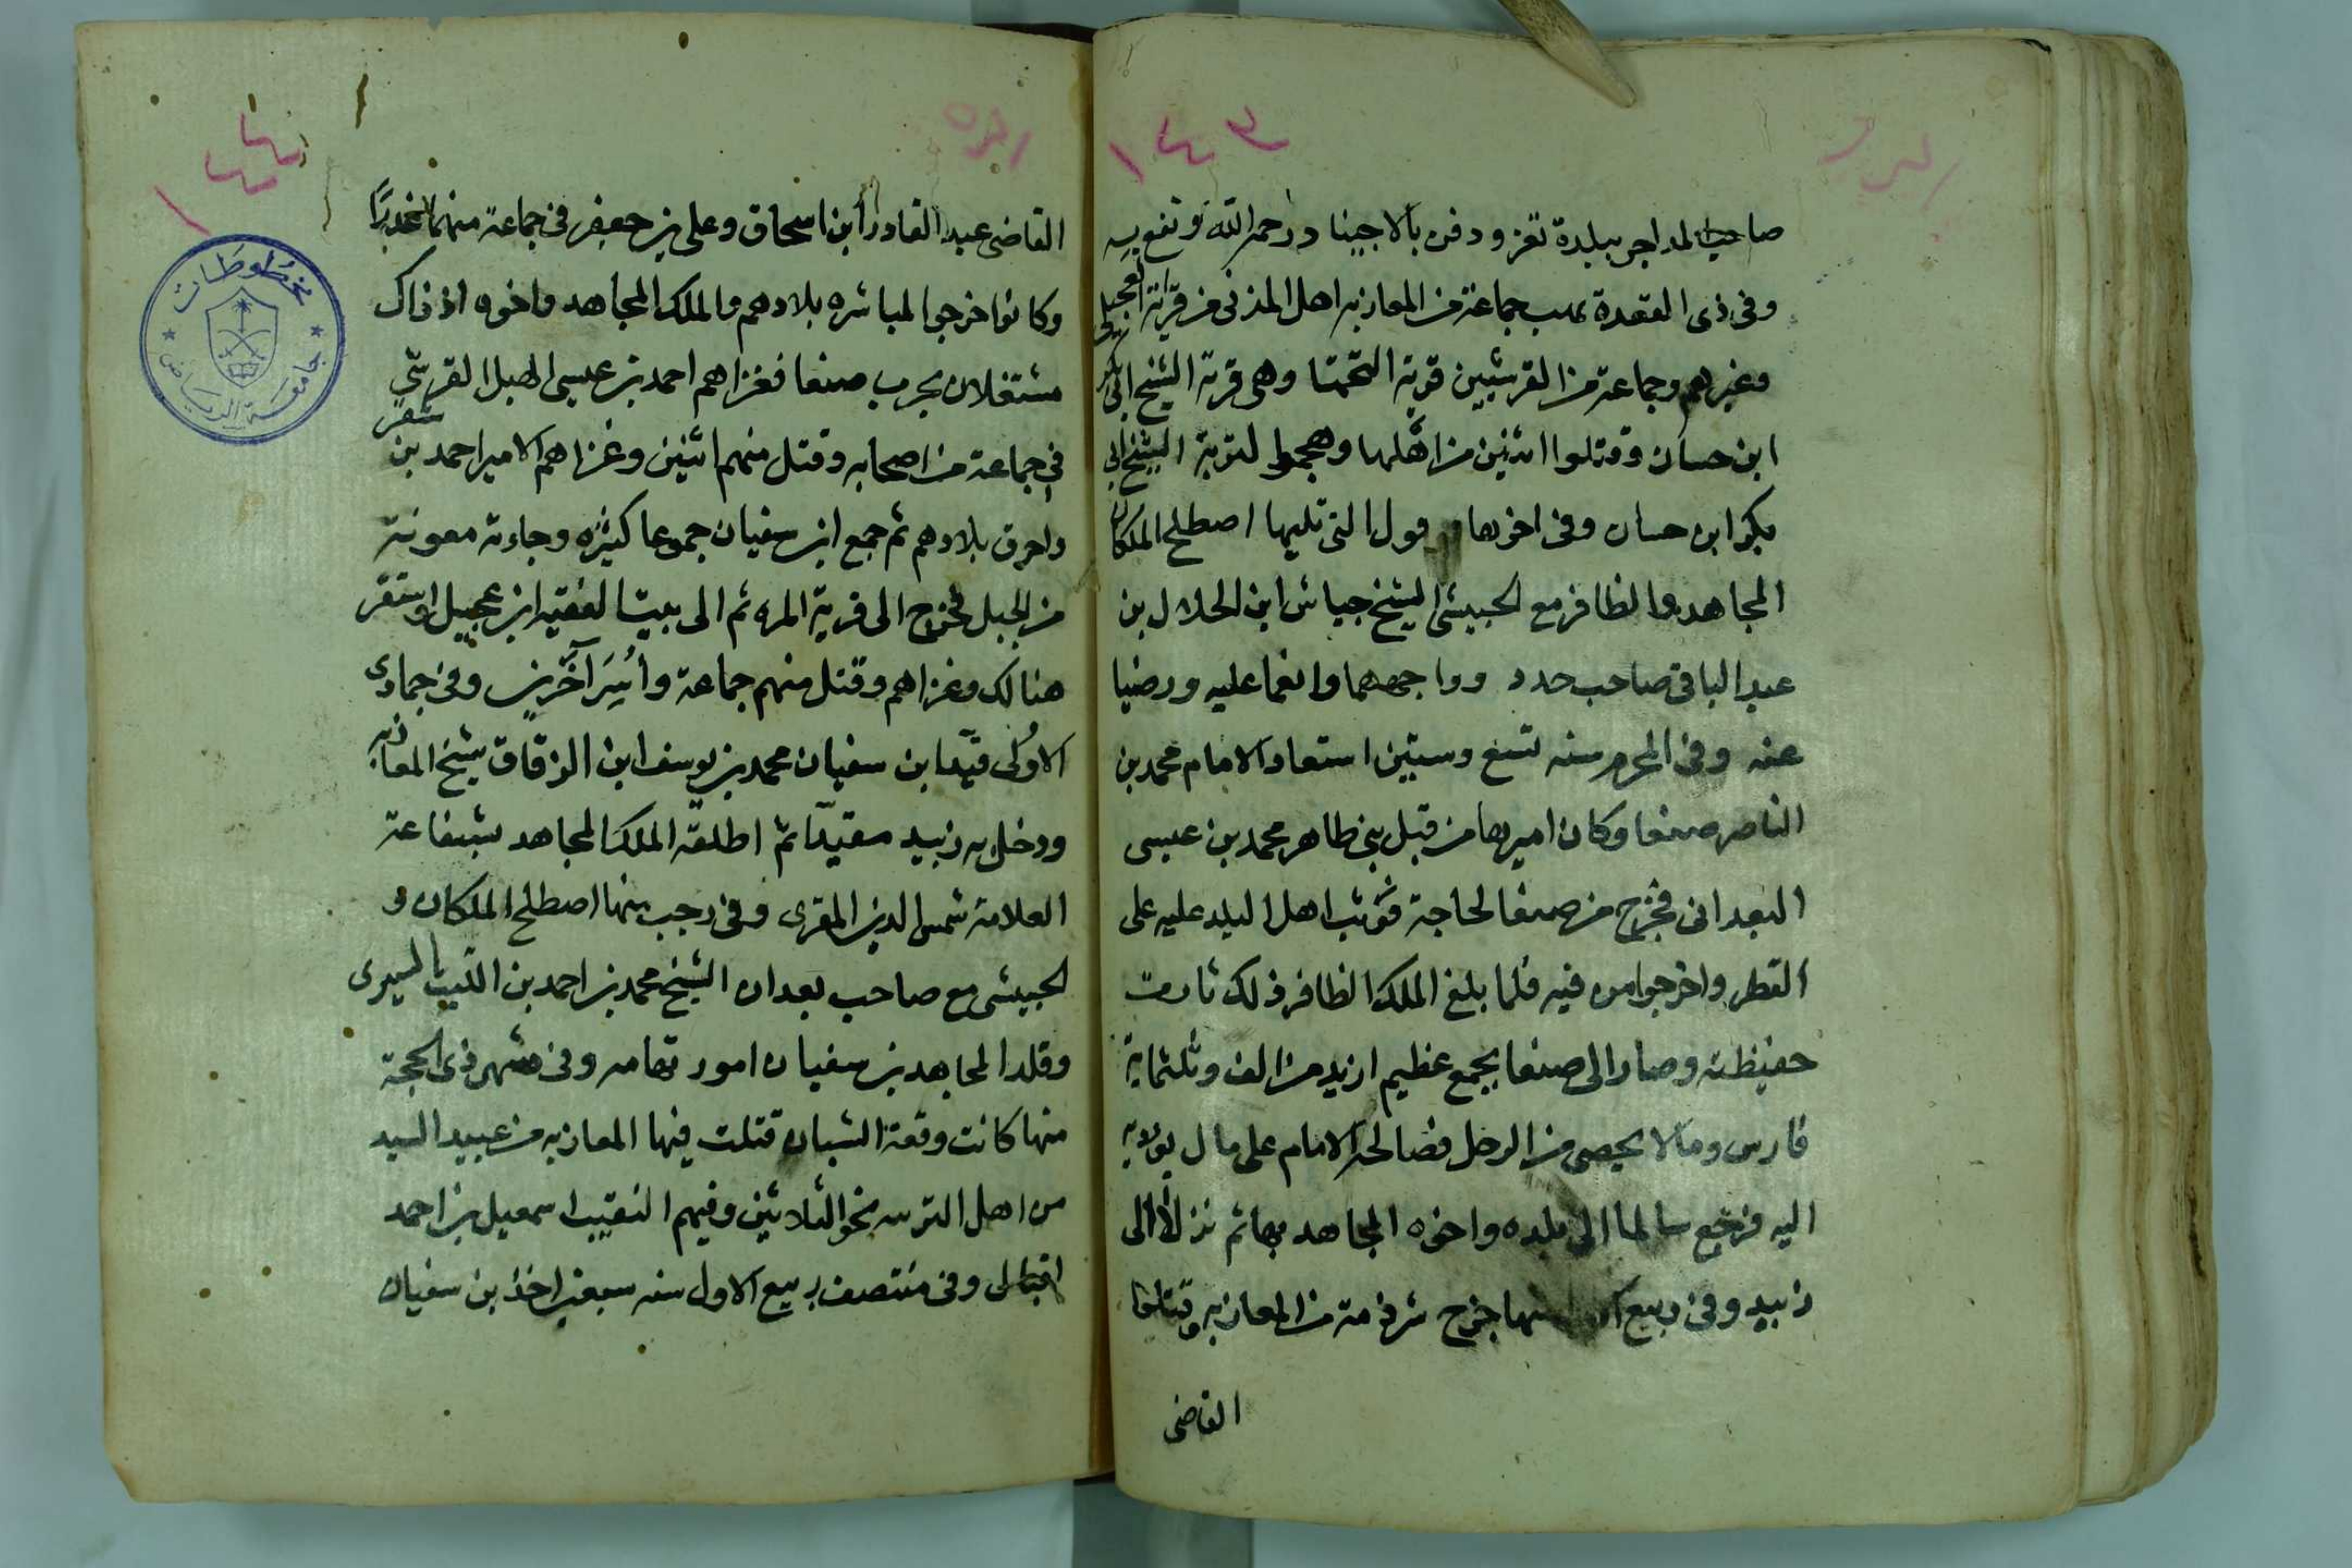 ١٤٣
صاحب المداجر ببلدة تعز ودفن بالاجيناد رحمه الله ونفع به
وفى ذى القعدة نهب جماعة من المعازبه اهل المدنى من قرية العجيلى
وغيرهم وجماعة من القرشيين قرية التحيتا وهى قرية الشيخ ابى بكر
ابن حسان وقتلوا اثنين من اهلها وهجموا لتربة الشيخ ابى
بكر ابن حسان وفى اخرها او فى اول التى تليها اصطلح الملكان
المجاهد والظافر مع الحبيشى الشيخ جياش ابن الحلال بن
عبد الباقى صاحب حدد وواجههما وانعما عليه ورضيا
عنه وفى المحرم سنه تسع وستين استعاد الامام محمد بن
الناصر صنعا وكان اميرها من قبل بنى طاهر محمد بن عيسى
البعدانى فخرج من صنعا لحاجة فوثب اهل البلد عليه على
القطر واخرجوا من فيه فلما بلغ الملك الظافر ذلك ثارت
حفيظته وصار الى صنعا بجمع عظيم ازيد من الف وثلثماية
فارس ومالا يحصى من الرجل فصالحه الامام على مال يوديه
اليه فرجع سالما الى بلده واخوه المجاهد بها ثم نزلا الى
زبيد وفى ربيع منها خرج شرذمة من المعازبه وقتلوا
القاضى
١٤٤
القاضى عبد القادر ابن اسحاق وعلى بن جعفر فى جماعة منهم غدرًا
وكانوا خرجوا لمباشره بلادهم والملك المجاهد واخوه اذ ذاك
مشتغلان بحرب صنعا فغزاهم احمد بن عيسى الهبل القرشى
فى جماعة من اصحابه وقتل منهم اثنين وغزاهم الامير احمد بن سنقر
واحرق بلادهم ثم جمع ابن سفيان جموعا كثيره وجاءته معونته
من الجبل فخرج الى قرية المره ثم الى بيت الفقيه ابن عجيل واستقر
هنالك وغزاهم وقتل منهم جماعة وأُسِرَ آخرين وفى جمادى
الاولى قيّد ابن سفيان محمد بن يوسف ابن الزقاق شيخ المعازبه
ودخل به زبيد مقيدًا ثم اطلقه الملك المجاهد بشفاعة
العلامة شمس الدين المقرى وفى رجب منها اصطلح الملكان و
الحبيشى مع صاحب بعدان الشيخ محمد بن احمد بن الليث السيرى
وقلد المجاهد بن سفيان امور تهامه وفى شهر ذى الحجة
منها كانت وقعة الشبان قتلت فيها المعازبه من عبيد السيد
من اهل التربيه نحو الثلاثين وفيهم النقيب اسمعيل بن احمد
وفى منتصف ربيع الاول سنه سبعين اخذ بن سفيان
مخطوطات
جامعة الرياض